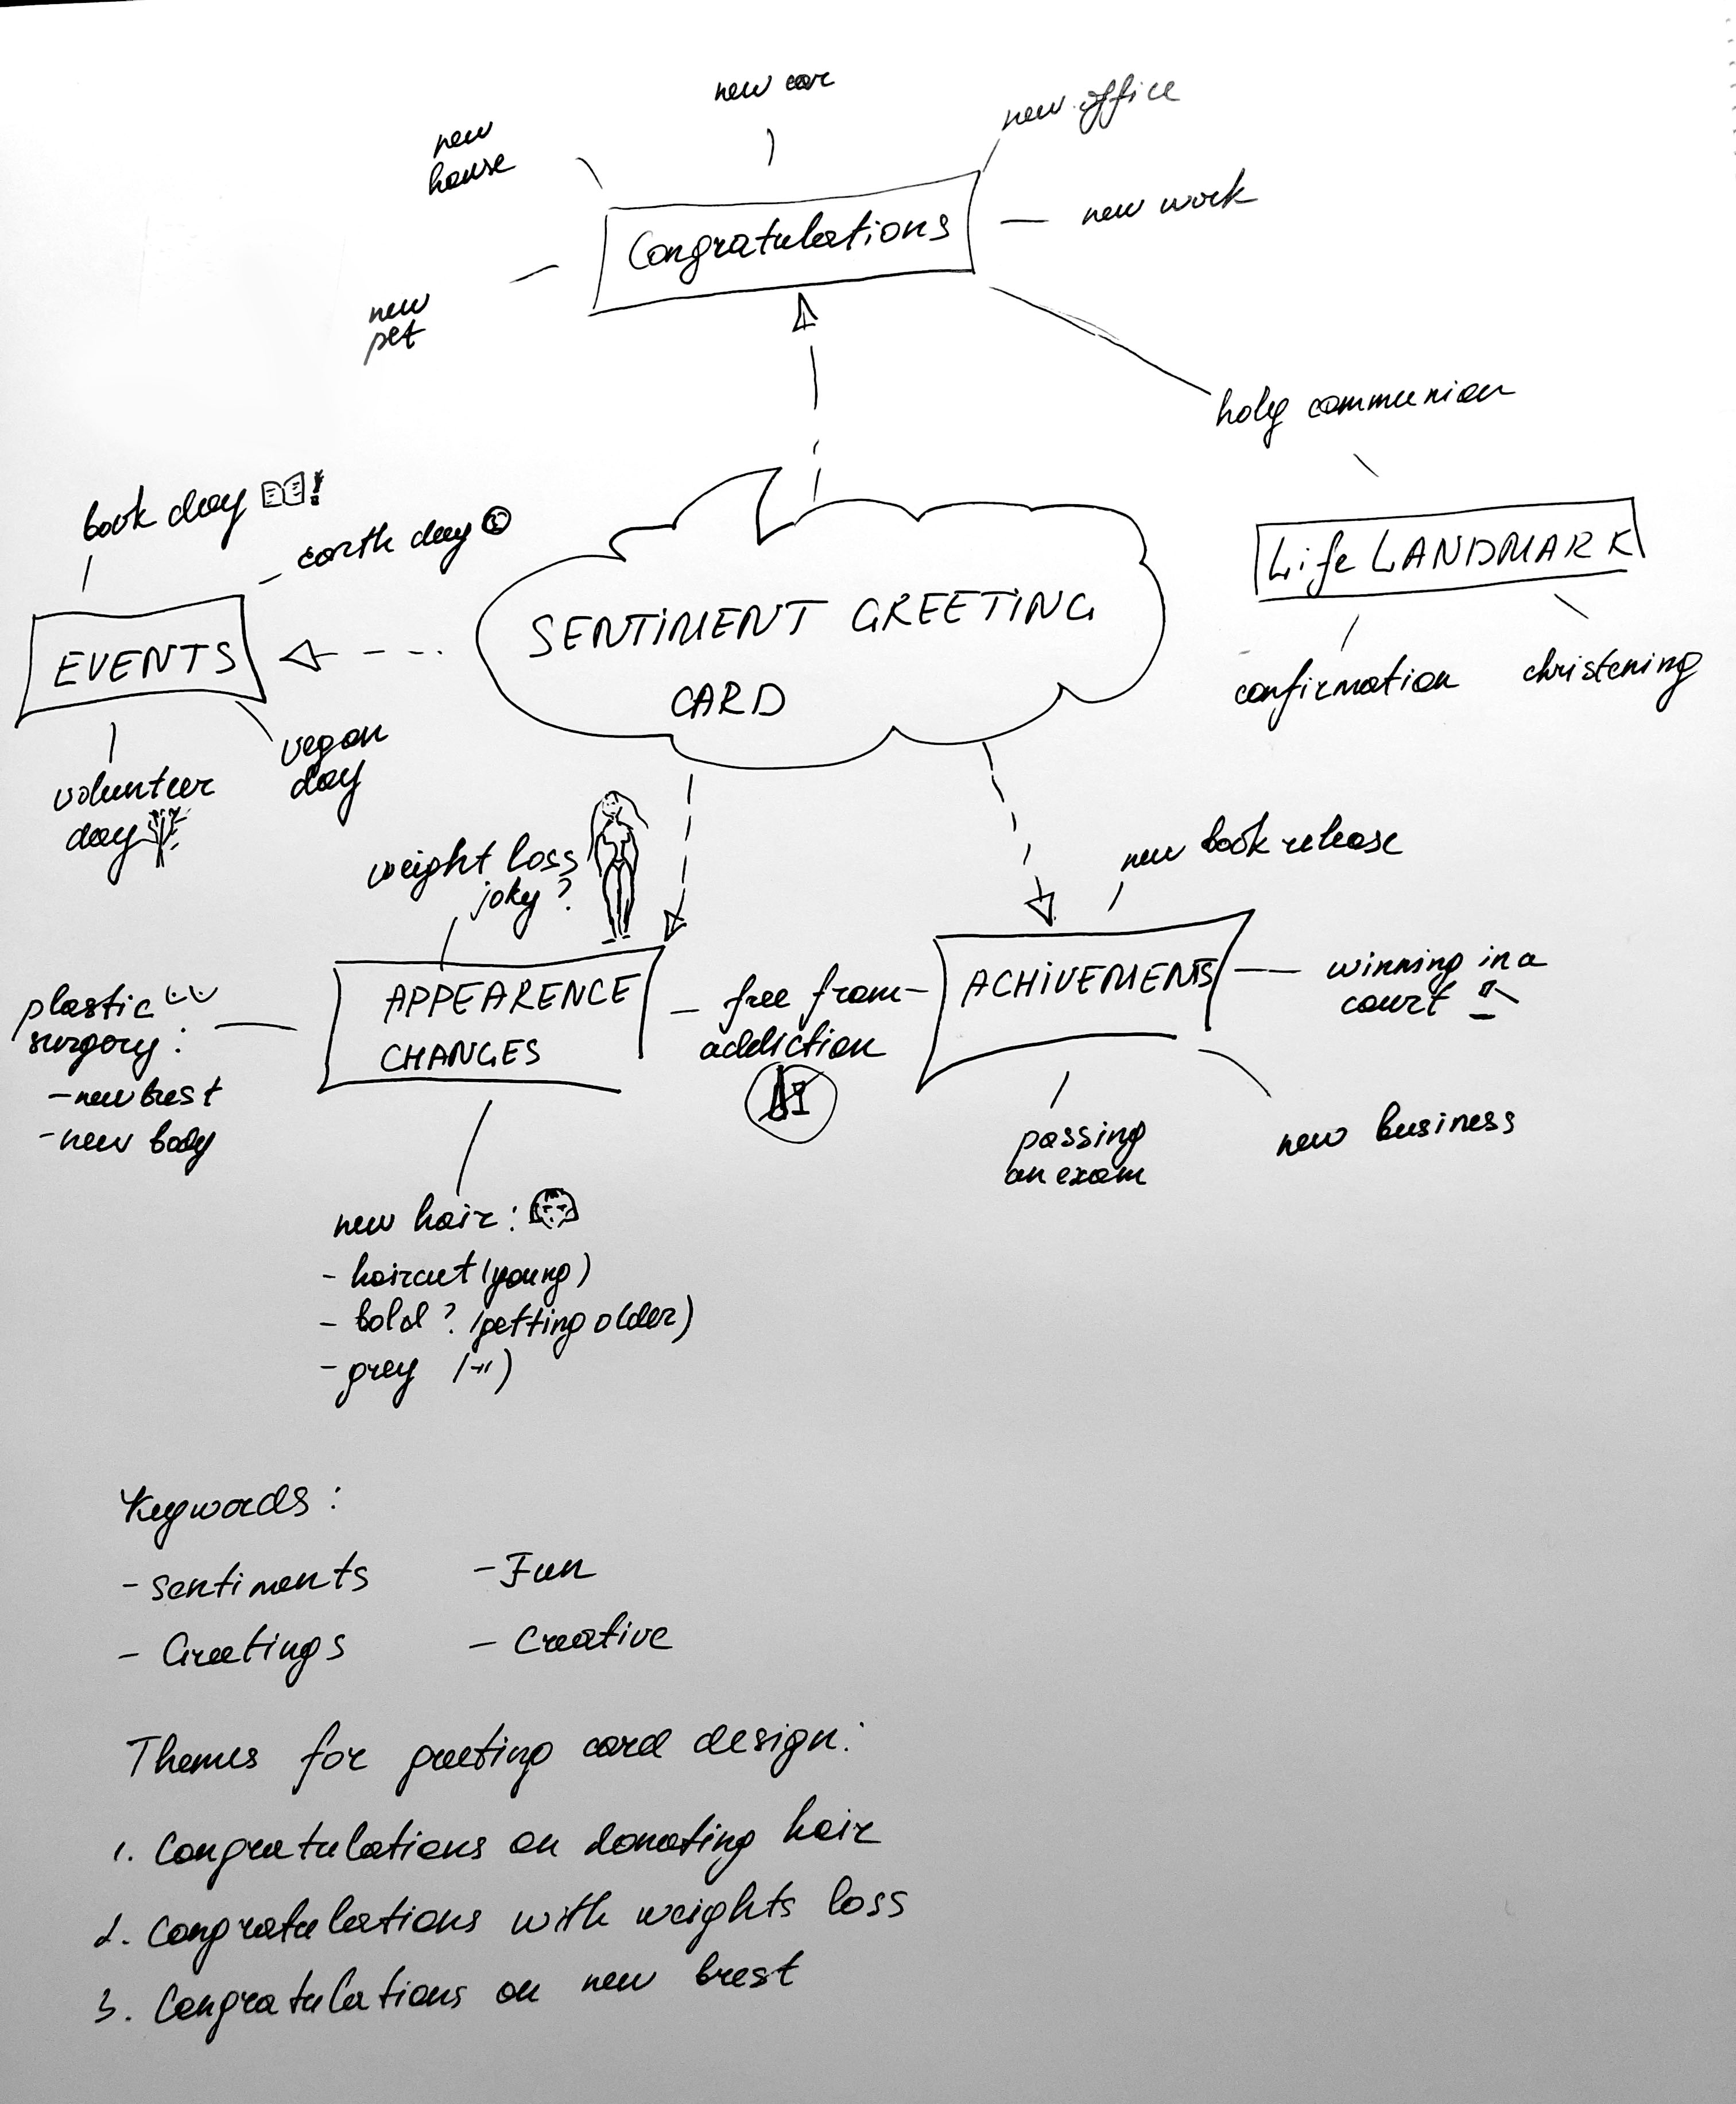 new car
new office
new
house
Congratulations
new work
new
pet
holy communion
book day
earth day
Life LANDMARK
SENTIMENT GREETING
CARD
EVENTS
confirmation
christening
vegan
day
volunteer
day
weight loss
joky?
new book release
APPEARENCE
CHANGES
free from
addiction
ACHIVEMENTS
winning in a
court
plastic
surgery:
- new brest
- new body
passing
an exam
new business
new hair:
- haircut (young)
- bold? (getting older)
- grey (-"-)
Keywords:
- Sentiments
- Fun
- Greetings
- Creative
Themes for greeting card design:
1. Congratulations on donating hair
2. Congratulations with weights loss
3. Congratulations on new brest